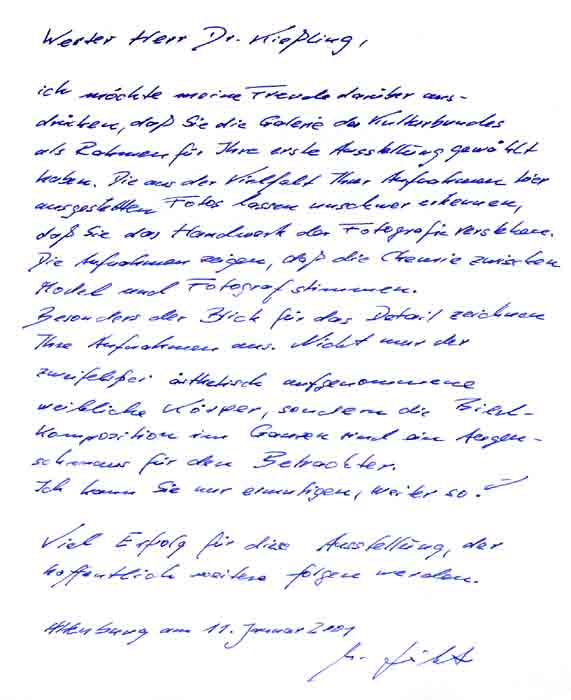 Werter Herr Dr. Kießling,
ich möchte meine Freude darüber aus-
drücken, daß Sie die Galerie des Kulturbundes
als Rahmen für Ihre erste Ausstellung gewählt
haben. Die aus der Vielfalt Ihrer Aufnahmen hier
ausgestellten Fotos lassen unschwer erkennen,
daß Sie das Handwerk der Fotografie verstehen.
Die Aufnahmen zeigen, daß die Chemie zwischen
Model und Fotograf stimmen.
Besonders der Blick für das Detail zeichnen
Ihre Aufnahmen aus. Nicht nur der
zweifelsfrei ästhetisch aufgenommene
weibliche Körper, sondern die Bild-
komposition im Ganzen sind ein Augen-
schmaus für den Betrachter.
Ich kann Sie nur ermutigen, weiter so!
Viel Erfolg für diese Ausstellung, der
hoffentlich weitere folgen werden.
Altenburg am 11. Januar 2001